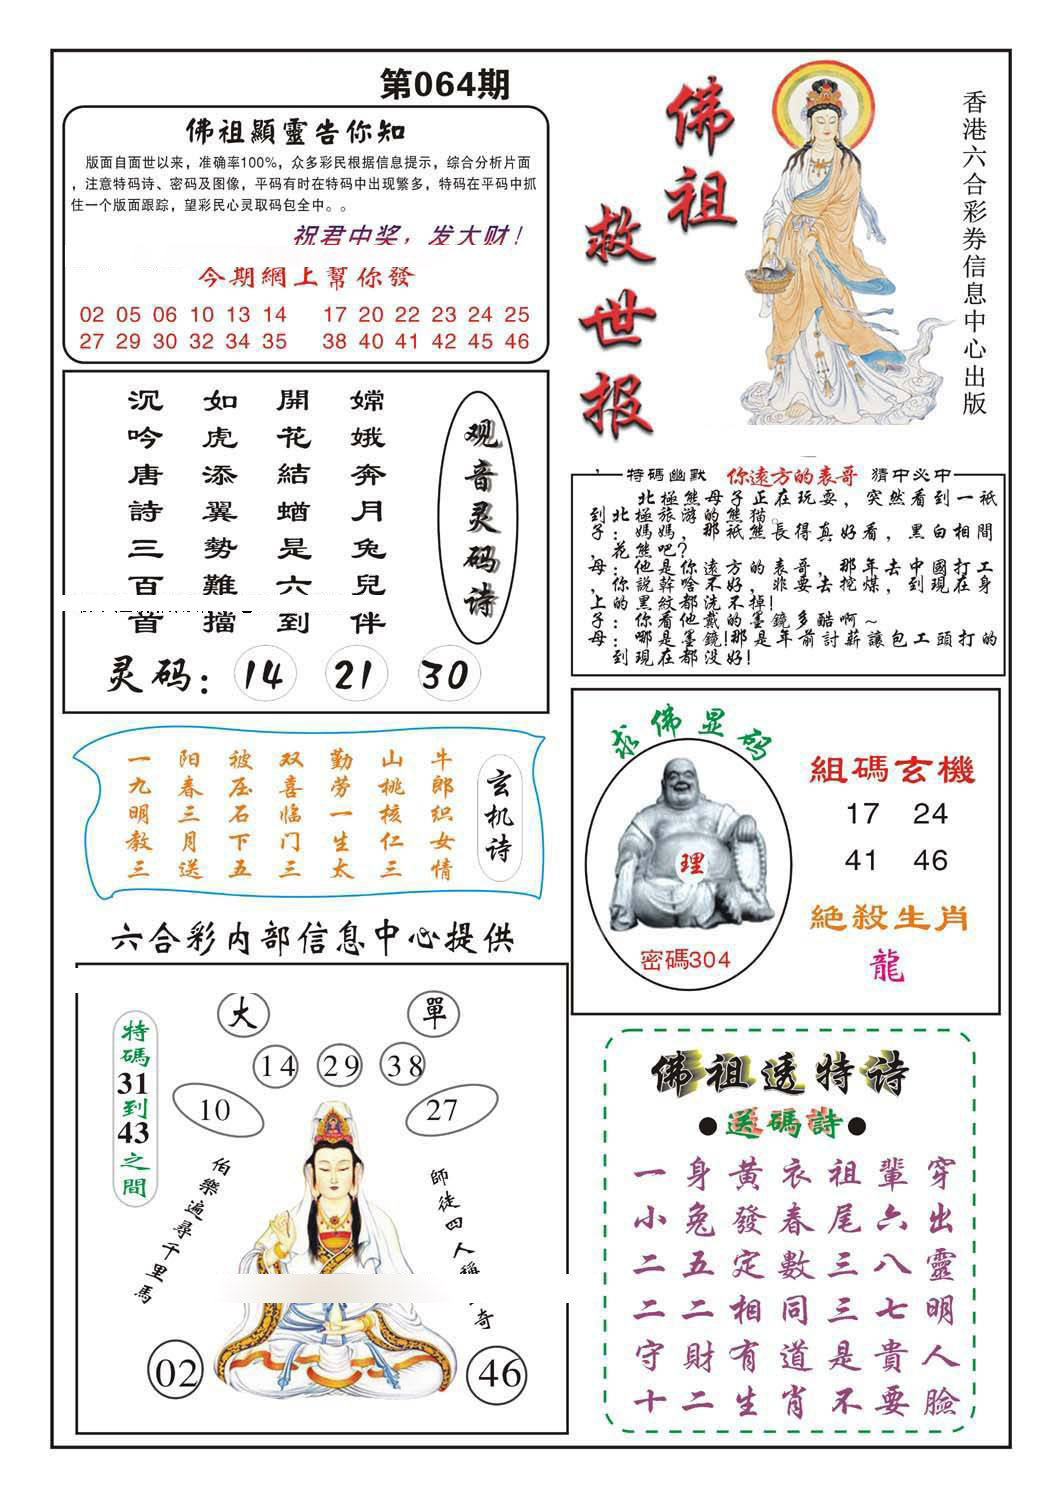 第064期
佛祖顯靈告你知
版面自面世以来，准确率100%，众多彩民根据信息提示，综合分析片面
，注意特码诗、密码及图像，平码有时在特码中出现繁多，特码在平码中抓
住一个版面跟踪，望彩民心灵取码包全中。。
祝君中奖，发大财！
今期網上幫你發
02 05 06 10 13 14 17 20 22 23 24 25
27 29 30 32 34 35 38 40 41 42 45 46
佛祖
救世报
香港六合彩券信息中心出版
观音灵码诗
嫦娥奔月兔兒伴
開花結蝤是六到
如虎添翼勢難擋
沉吟唐詩三百首
灵码：14 21 30
特碼幽默 你遠方的表哥 猜中必中
北極熊母子正在玩耍，突然看到一祇
到北極旅游的熊猫。
子：媽媽，那祇熊長得真好看，黑白相間
，花熊吧？
母：他是你遠方的表哥，那年去中國打工
，你説幹啥不好，非要去挖煤，到現在身
上的黑紋都洗不掉！
子：你看他戴的墨鏡多酷啊～
母：哪是墨鏡！那是年前討薪讓包工頭打的
到現在都没好！
玄机诗
牛郎织女情
山桃核仁三
勤劳一生太
双喜临门三
被压石下五
阳春三月送
一九明教三
求佛显码
理
密碼304
組碼玄機
17 24
41 46
絶殺生肖
龍
六合彩内部信息中心提供
特碼31到43之間
大
單
14 29 38
10
27
伯樂遍尋千里馬
師徒四人
奇
02
46
佛祖透特诗
●送碼詩●
一身黃衣祖輩穿
小兔發春尾六出
二五定數三八靈
二二相同三七明
守財有道是貴人
十二生肖不要臉